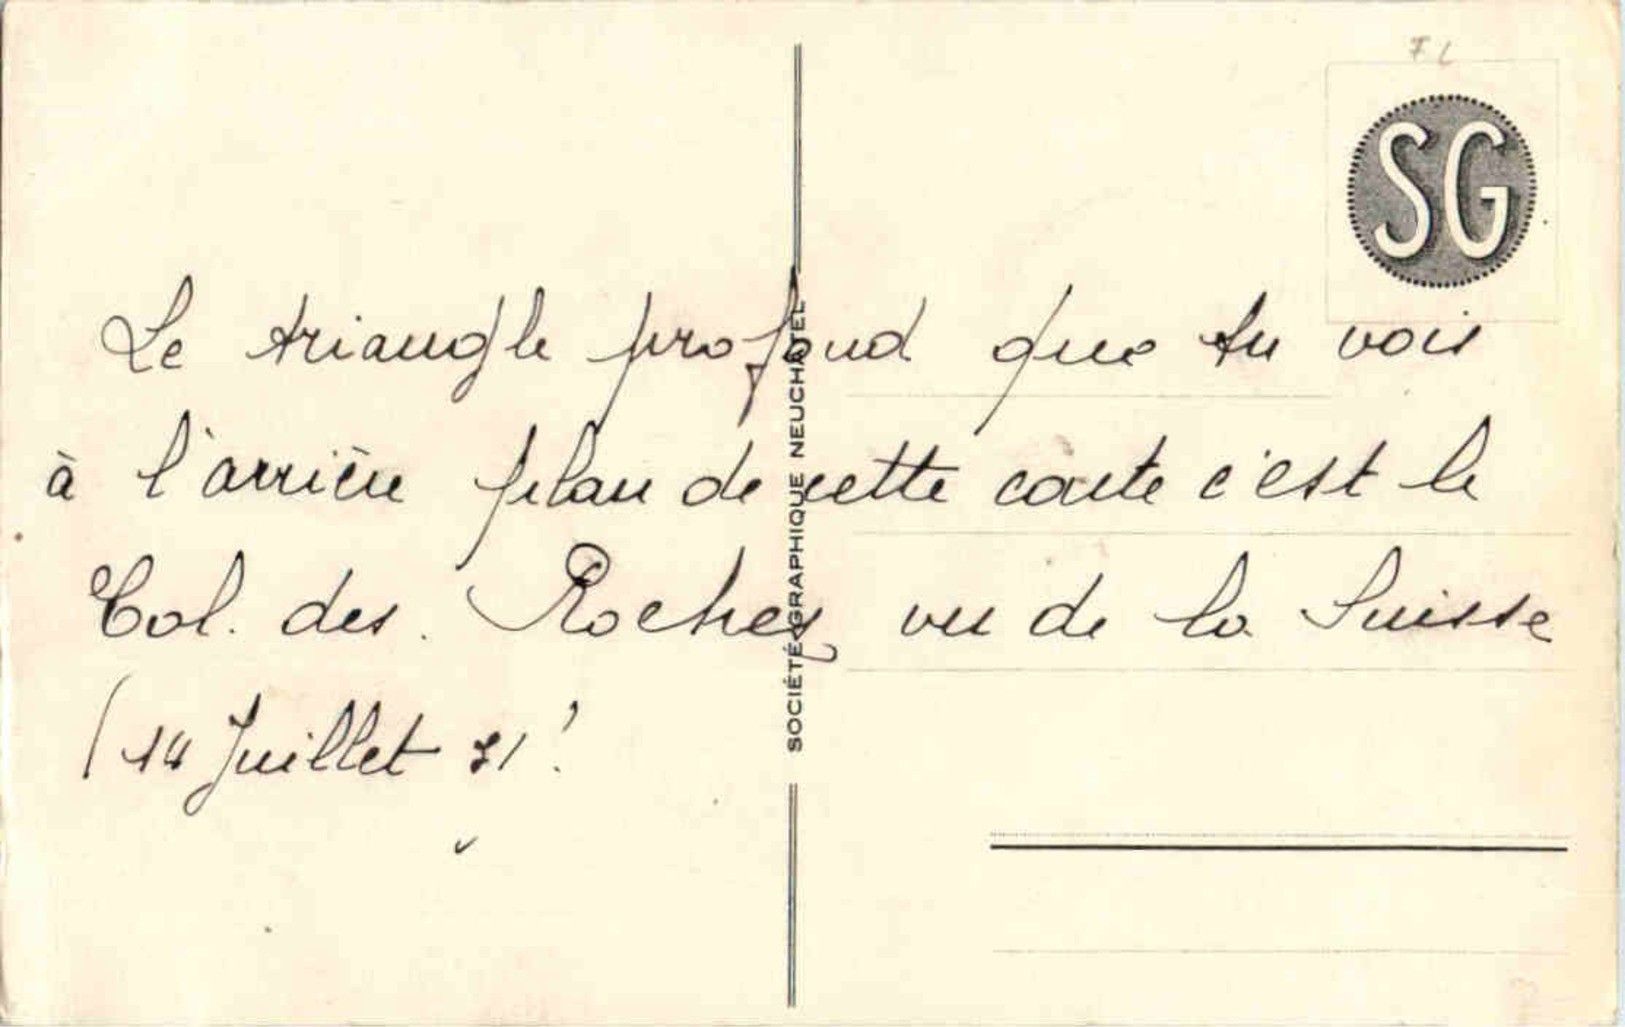 SG
Le triangle profond que tu vois
à l'arrière plan de cette carte c'est le
Col. des. Roches vu de la Suisse
(14 Juillet 51!
SOCIÉTÉ GRAPHIQUE NEUCHATEL